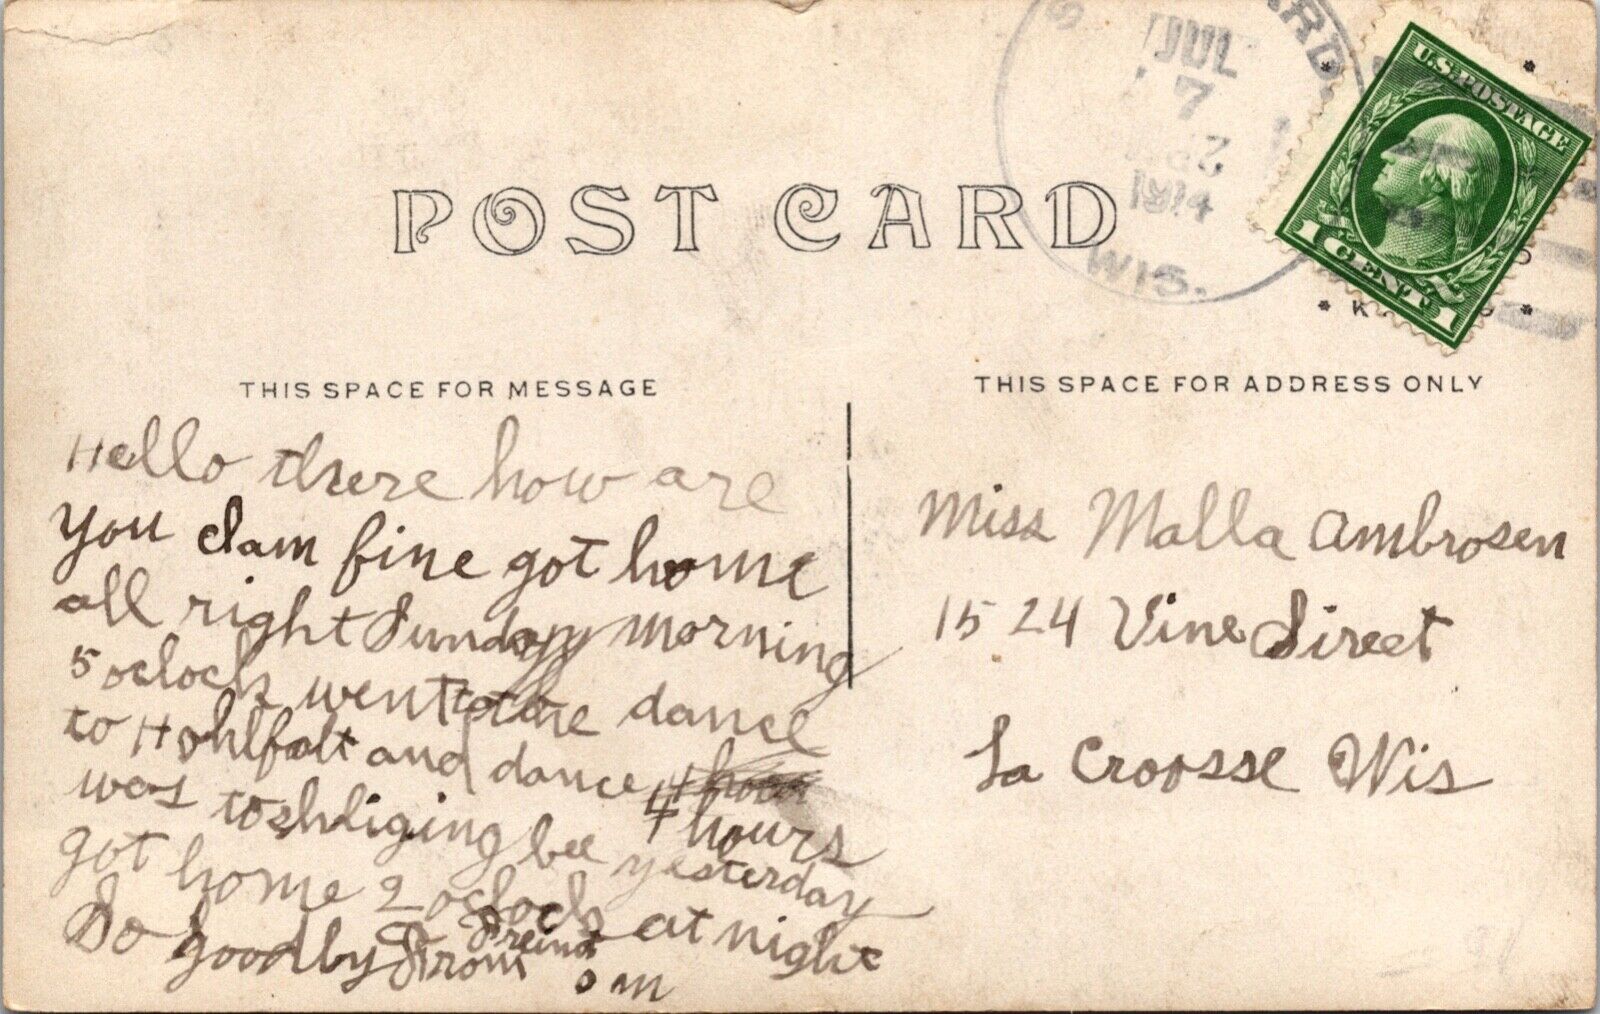 JUL
7
1914
WIS.
U.S. POSTAGE
1 CENT 1
POST CARD
THIS SPACE FOR MESSAGE
THIS SPACE FOR ADDRESS ONLY
Hello there how are
you dam fine got home
all right Sunday morning
5 oclock went to the dance
to Hohlfalt and dance
4 hours
was to shliging bee yesterday
got home 2 oclock at night
So goodby From Freind
om
Miss Malla Ambrosen
1524 Vine Street
La Croosse Wis